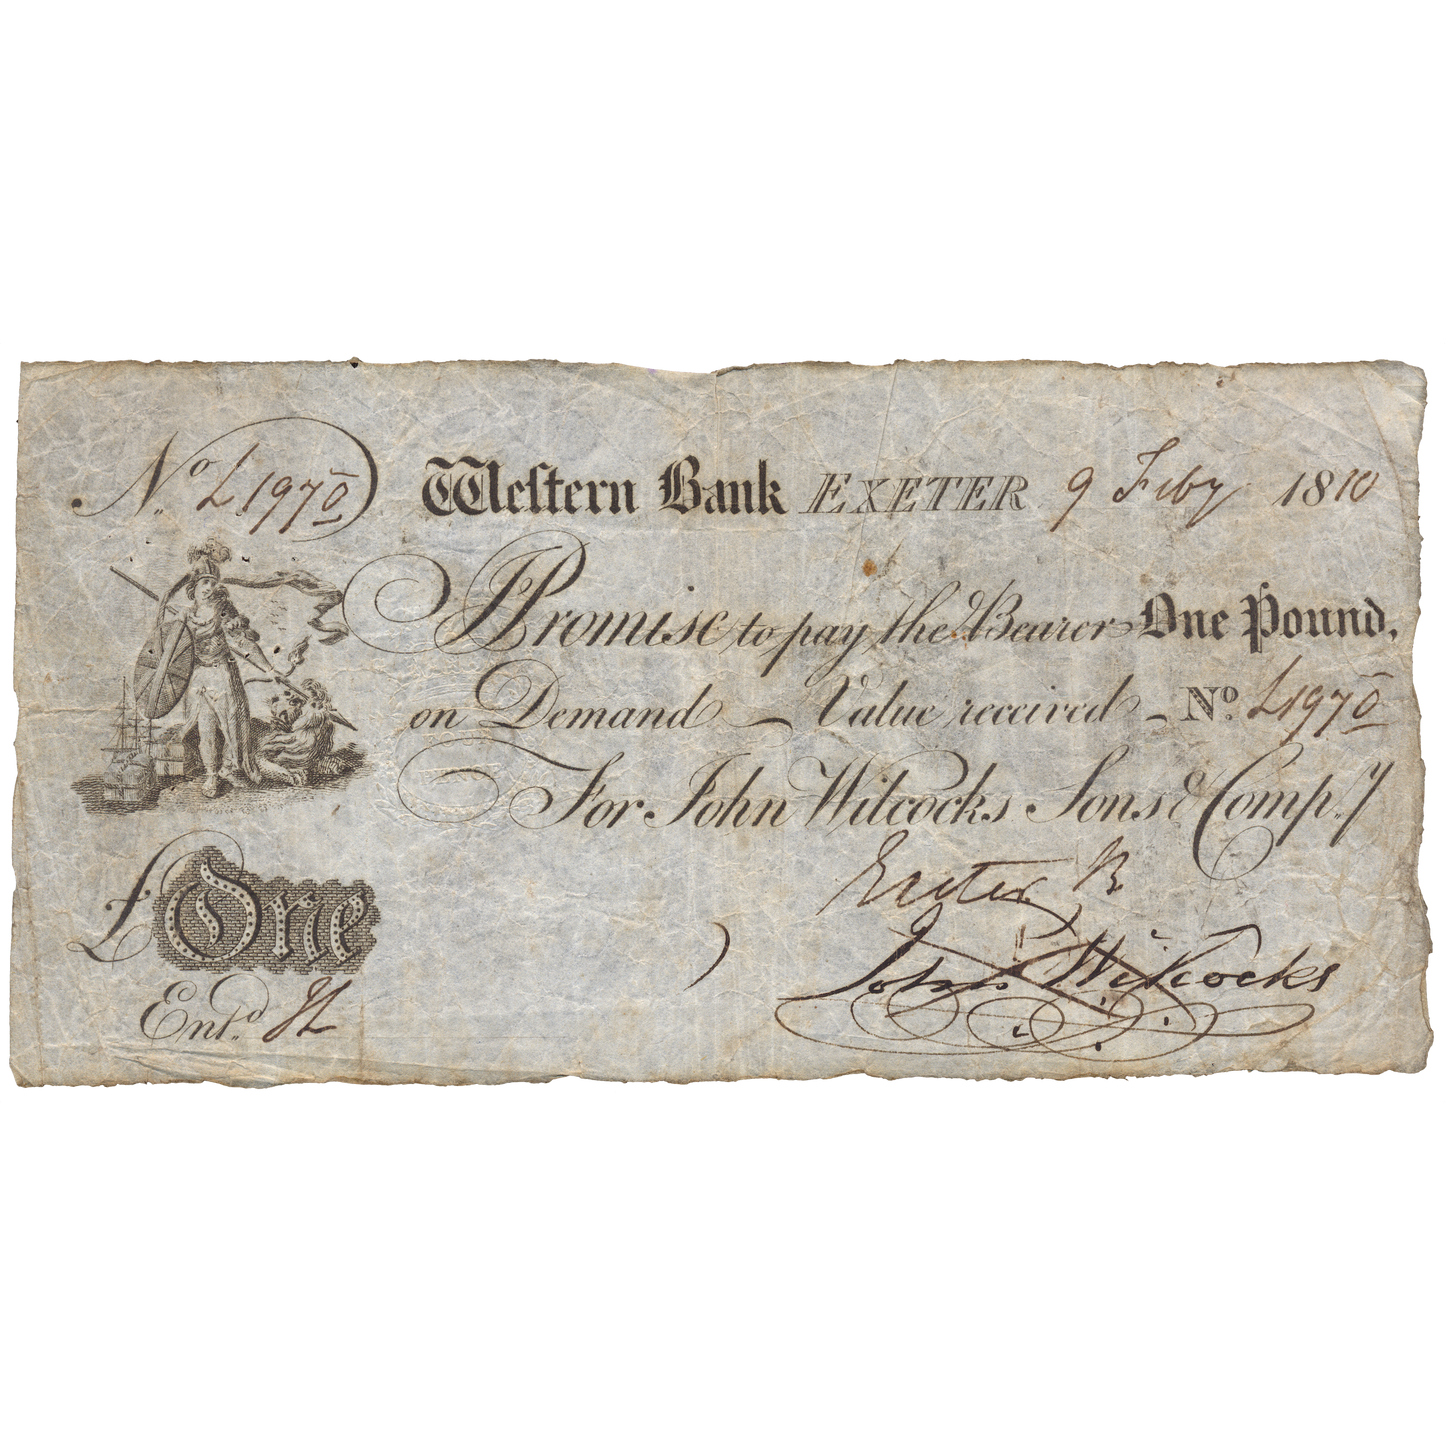 No. L1970 Weſtern Bank EXETER 9 Feby 1810
I Promise to pay the Bearer One Pound,
on Demand Value received No. L1970
For John Wilcocks Sons & Comp.y
£ One
Exeter B
John Wilcocks
Ent.d